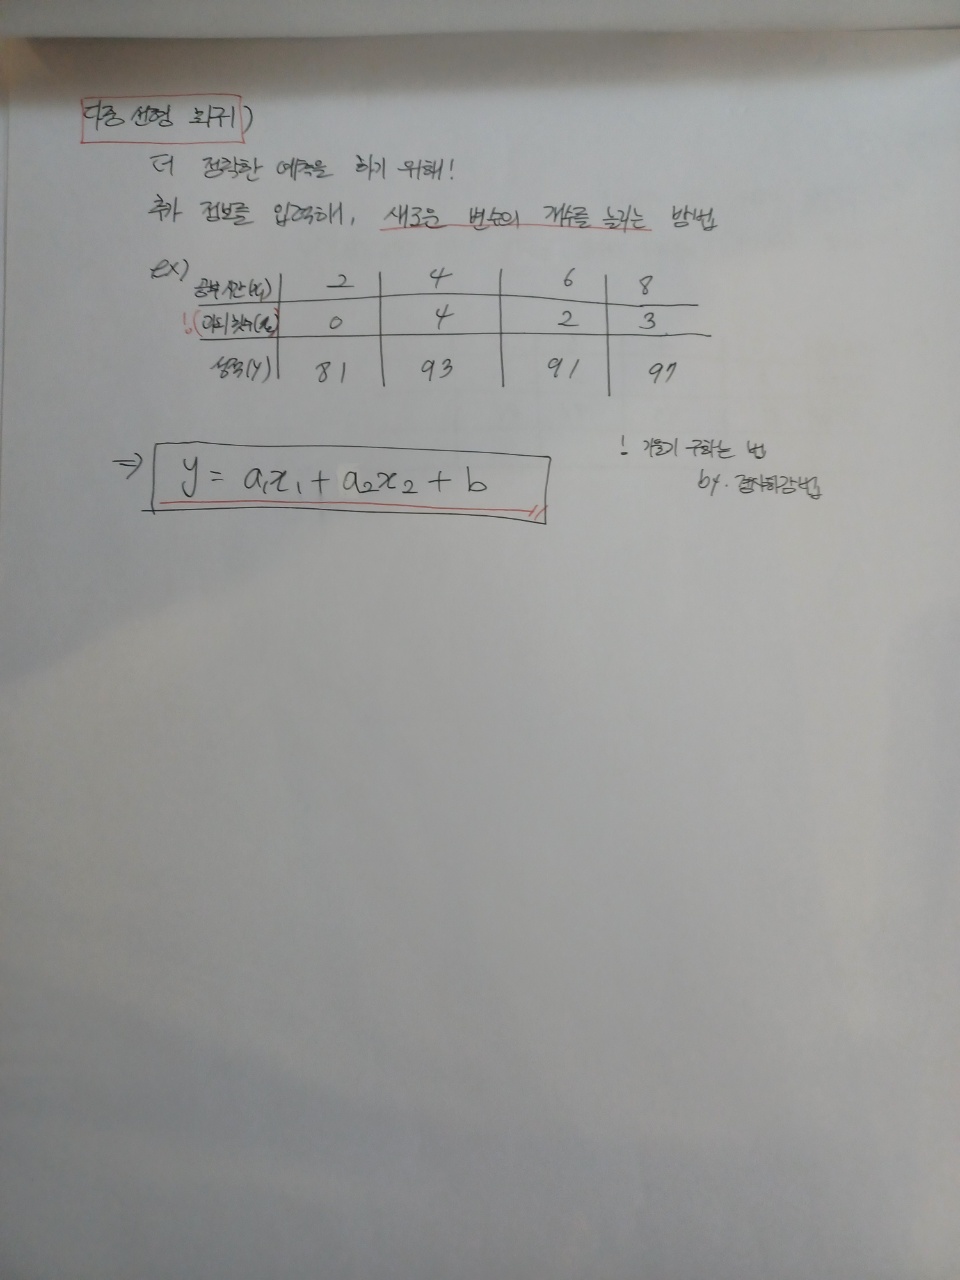 다중 선형 회귀)
더 정확한 예측을 하기 위해!
추가 정보를 입력해, 새로운 변수의 개수를 늘리는 방법
ex)
공부 시간(x₁) 2 4 6 8
!(과외 횟수(x₂) 0 4 2 3
성적(y) 81 93 91 97
⇒ y = a₁x₁ + a₂x₂ + b
! 기울기 구하는 법
by. 경사하강법